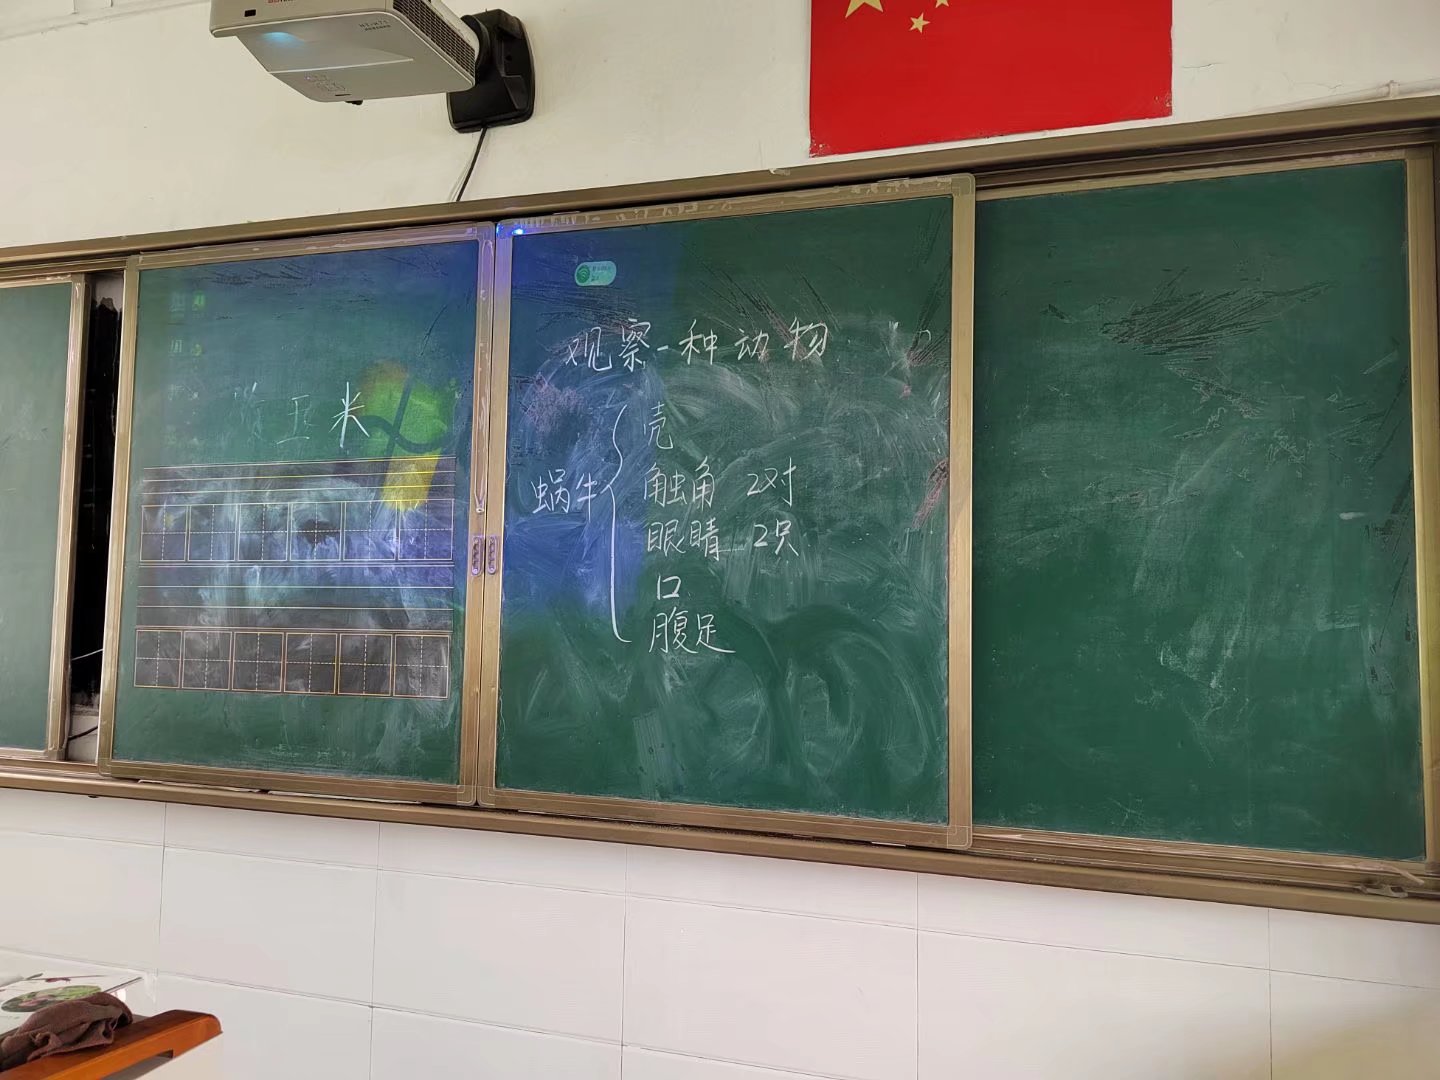 玉米
观察一种动物
蜗牛
壳
触角 2对
眼睛 2只
口
腹足